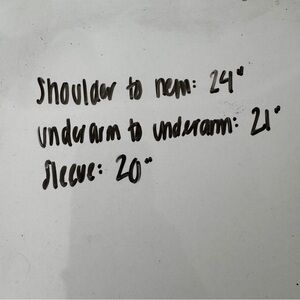 Shoulder to hem: 24"
underarm to underarm: 21"
sleeve: 20"